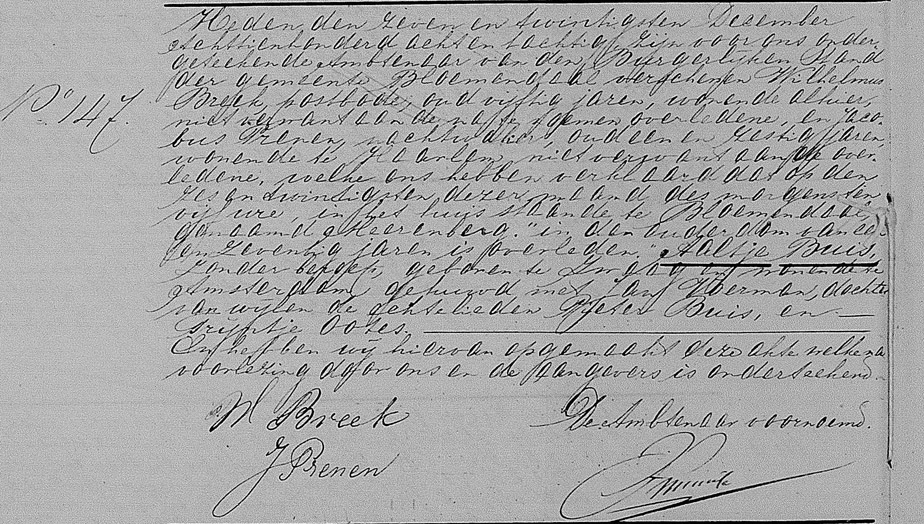 Heden den zeven en twintigsten December
achttienhonderd acht en tachtig zijn voor ons onder-
geteekende Ambtenaar van den Burgerlijken Stand
der gemeente Bloemendaal verschenen Wilhelmus
Breek, postbode, oud vijftig jaren, wonende alhier,
No. 147.
niet verwant aan de na te noemen overledene, en Jaco-
bus Prenen, nachtwaker, oud een en zestig jaren
wonende te Haarlem, niet verwant aan de over-
ledene, welke ons hebben verklaard dat op den
zes en twintigsten dezer maand des morgens ten
vijf ure, in het huis staande te Bloemendaal
genaamd "Meerenberg" in den ouderdom van een
en zeventig jaren is overleden Aaltje Buis,
zonder beroep, geboren te en wonende te
Amsterdam, gehuwd met Jan Weerman, dochter
van wijlen de echtelieden Pieter Buis, en
Trijntje Ootes.
En hebben wij hiervan opgemaakt deze akte welke na
voorlezing door ons en de aangevers is onderteekend.
W Breek
De Ambtenaar voornoemd.
J Prenen